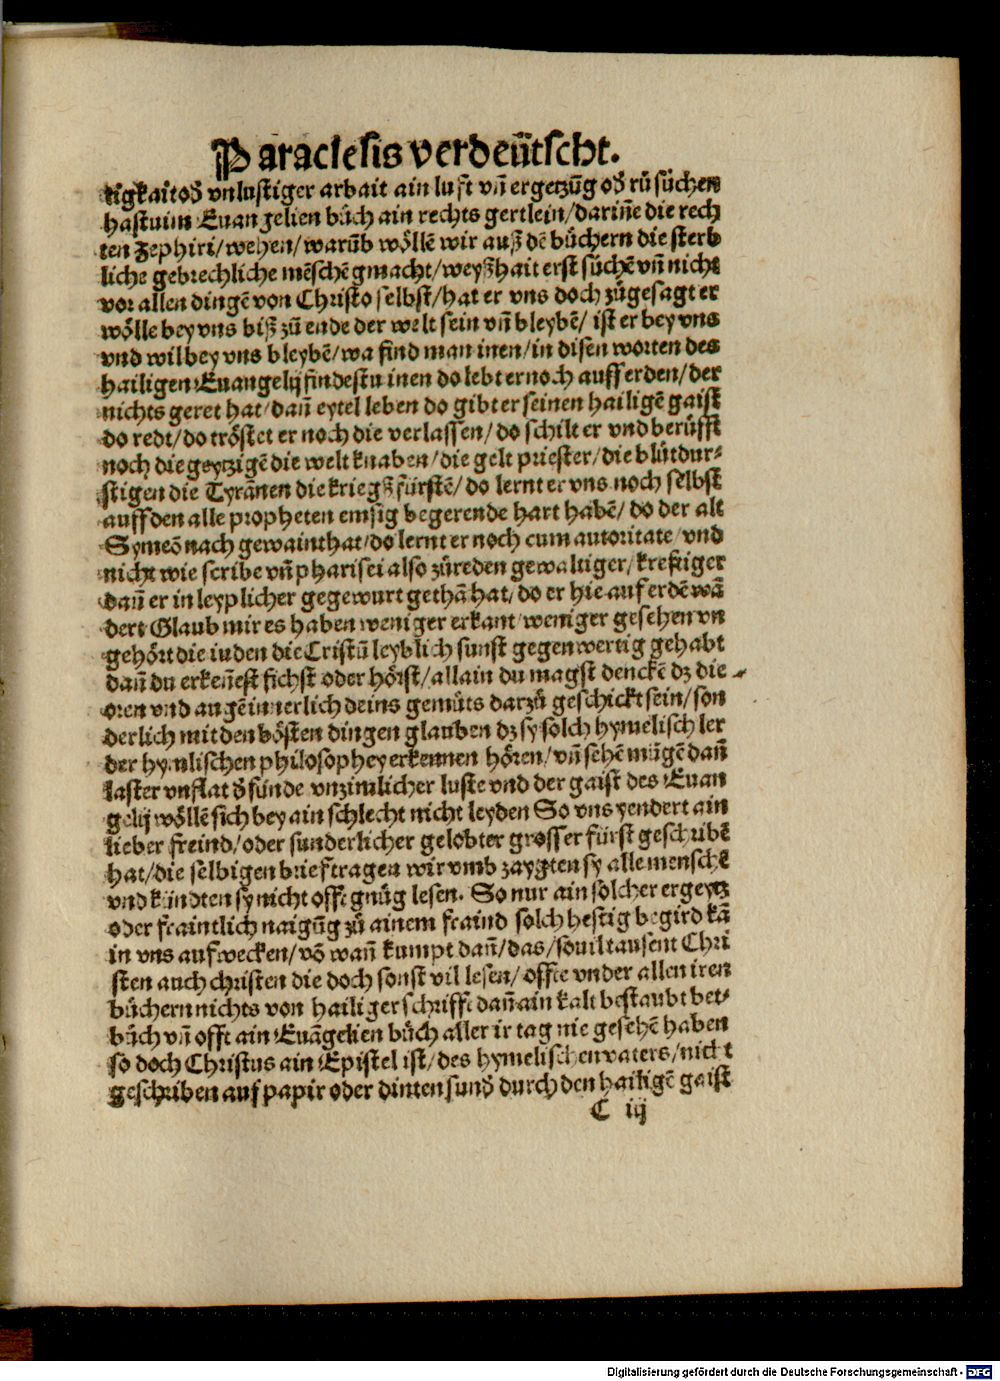 Paraclesis verdeütscht.
tigkait oď vnlustiger arbait ain luft vn̄ ergetzūg oď rů sůchen
hastu im Euangelien bůch ain rechts gertlein/darin̄e die rech
ten Zephiri/wehen/warūb wöllē wir auß dē bůchern die sterb
liche gebrechliche mēschē gmacht/weyßhait erst sůchē vn̄ nicht
vor allen dingē von Christo selbst/hat er vns doch zůgesagt er
wölle bey vns biß zů ende der welt sein vn̄ bleybē/ ist er bey vns
vnd wil bey vns bleybē/wa find man inen/in disen worten des
hailigen Euangelij findestu inen do lebt er noch auff erden/der
nichts geret hat/dan̄ eytel leben do gibt er seinen hailigē gaist
do redt/do tröstet er noch die verlassen/do schilt er vnd berůfft
noch die geytzigē die welt knaben/die gelt priester/die blůtdur⸗
stigen die Tyrānen die kriegß fürstē/do lernt er vns noch selbst
auff den alle propheten emsig begerende hart habē/do der alt
Symeō nach gewaint hat/do lernt er noch cum autoritate/vnd
nicht wie scribe vn̄ pharisei also zůreden gewaltiger/kreftiger
dan̄ er in leyplicher gegewurt gethā hat/do er hie auf erdē wā
dert Glaub mir es haben weniger erkant weniger gesehen vn
gehört die iuden die Cristū leyblich sunst gegenwertig gehabt
dan̄ du erken̄est sichst oder hörst/allain du magst denckē dz die
oren vnd augē innerlich deins gemüts darzů geschickt sein/son
derlich mit den bösten dingen glauben dz sy solch hymelisch ler
der hymlischen philosophey erkennen hören/vn̄ sehē mügē dan̄
laster vnflat ď sünde vnzimlicher luste vnd der gaist des Euan
gelij wöllē sich bey ain schlecht nicht leyden So vns yendert ain
lieber freind/oder sunderlicher gelobter grosser fürst geschribē
hat/die selbigen brief tragen wir vmb zaygten sy alle menschē
vnd kündten sy nicht offt gnůg lesen. So nur ain solcher ergeytz
oder fraintlich naigūg zů ainem fraind solch heftig begird kā
in vns aufwecken/vō wan̄ kumpt dan̄/das/souil tausent Chri
sten auch christen die doch sonst vil lesen/offte vnder allen iren
bůchern nichts von hailiger schrifft dan̄ ain kalt bestaubt bet⸗
bůch vn̄ offt ain Euāgelien bůch aller ir tag nie gesehē haben
so doch Christus ain Epistel ist/des hymelischen vaters/nicht
geschriben auf papir oder dinten sunď durch den hailigē gaist
C iij
Digitalisierung gefördert durch die Deutsche Forschungsgemeinschaft - DFG